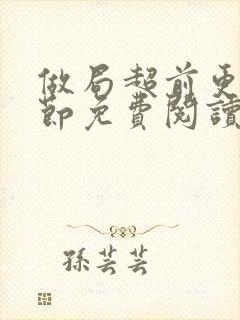 做局超前更
節免費閱讀
孫芸芸